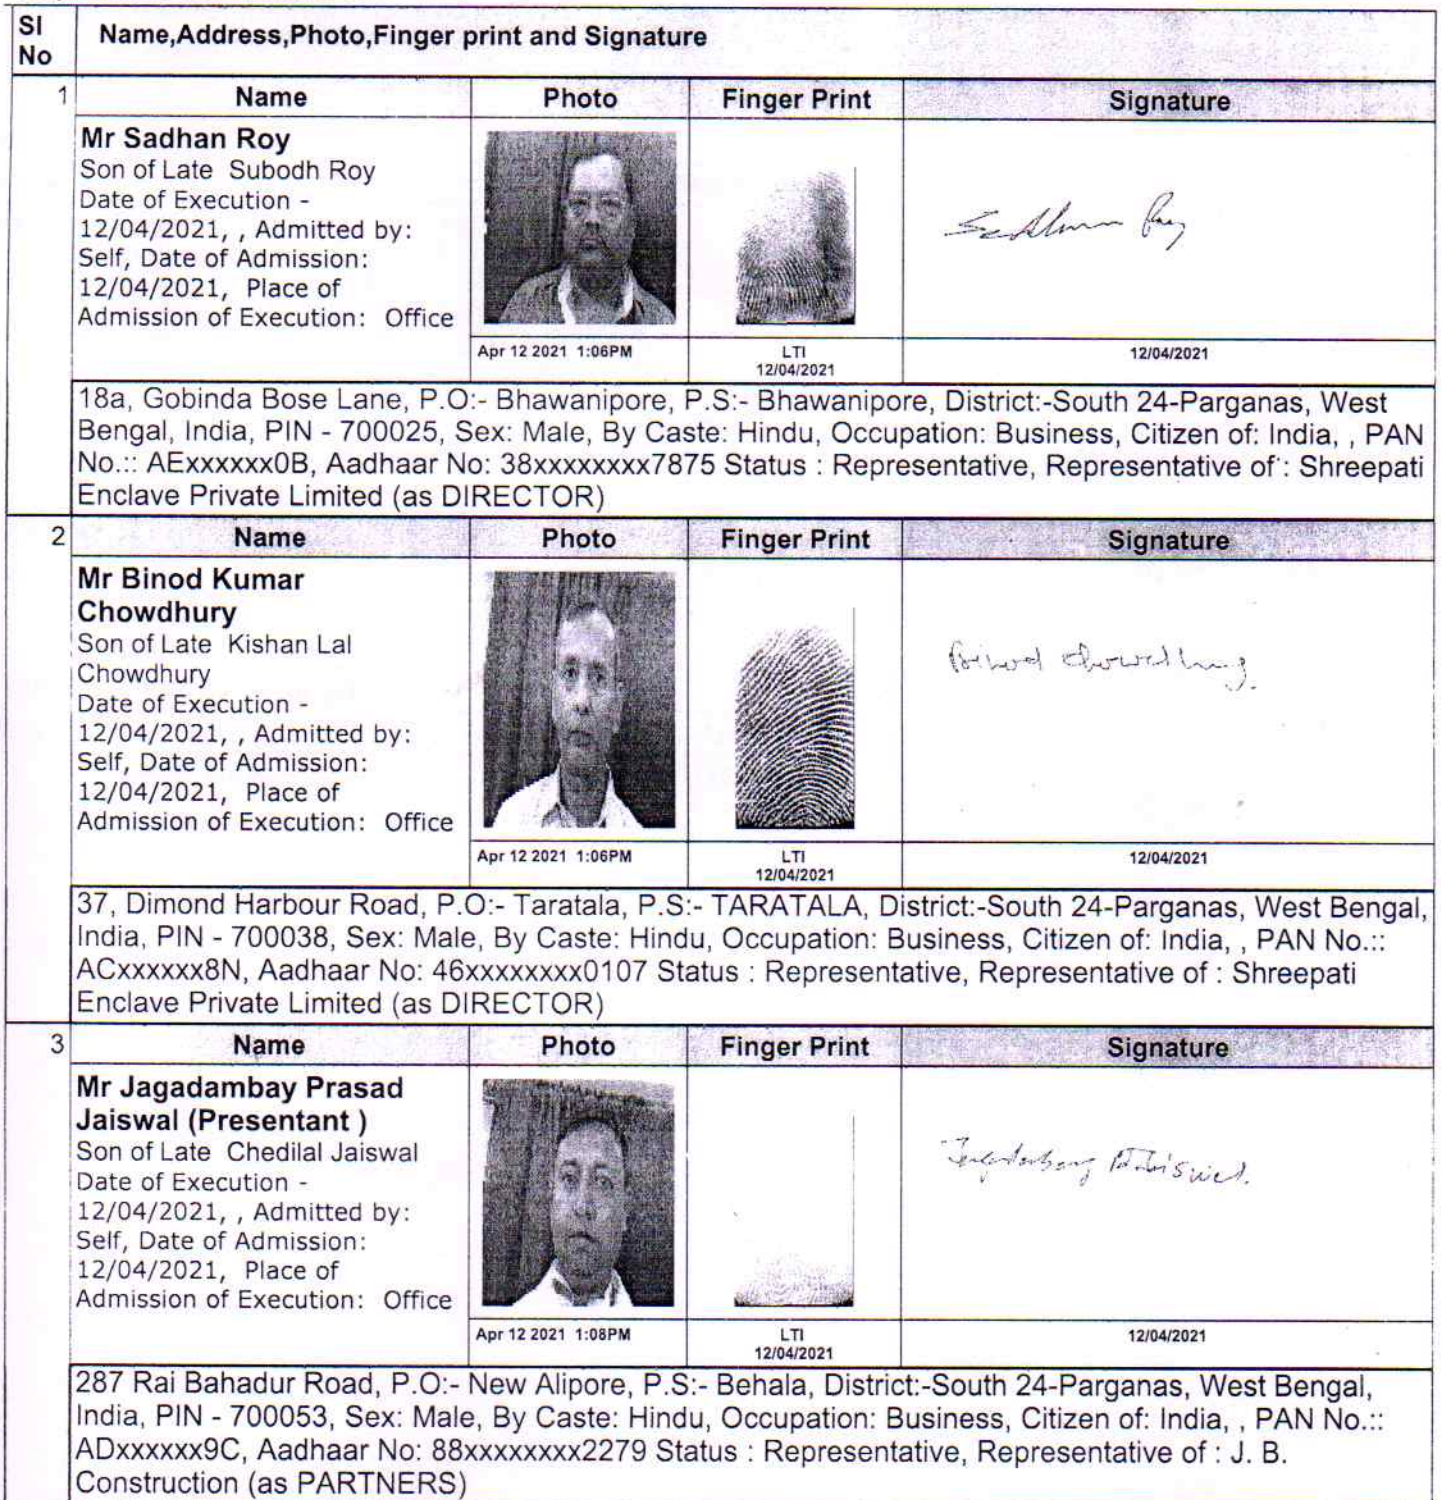 Sl
No
Name,Address,Photo,Finger print and Signature
1
Name Photo Finger Print Signature
Mr Sadhan Roy
Son of Late Subodh Roy
Date of Execution -
12/04/2021, , Admitted by:
Self, Date of Admission:
12/04/2021, Place of
Admission of Execution: Office
Sadhan Roy
Apr 12 2021 1:06PM
LTI
12/04/2021
12/04/2021
18a, Gobinda Bose Lane, P.O:- Bhawanipore, P.S:- Bhawanipore, District:-South 24-Parganas, West
Bengal, India, PIN - 700025, Sex: Male, By Caste: Hindu, Occupation: Business, Citizen of: India, , PAN
No.:: AExxxxxx0B, Aadhaar No: 38xxxxxxxx7875 Status : Representative, Representative of : Shreepati
Enclave Private Limited (as DIRECTOR)
2
Name Photo Finger Print Signature
Mr Binod Kumar
Chowdhury
Son of Late Kishan Lal
Chowdhury
Date of Execution -
12/04/2021, , Admitted by:
Self, Date of Admission:
12/04/2021, Place of
Admission of Execution: Office
Binod Chowdhury.
Apr 12 2021 1:06PM
LTI
12/04/2021
12/04/2021
37, Dimond Harbour Road, P.O:- Taratala, P.S:- TARATALA, District:-South 24-Parganas, West Bengal,
India, PIN - 700038, Sex: Male, By Caste: Hindu, Occupation: Business, Citizen of: India, , PAN No.::
ACxxxxxx8N, Aadhaar No: 46xxxxxxxx0107 Status : Representative, Representative of : Shreepati
Enclave Private Limited (as DIRECTOR)
3
Name Photo Finger Print Signature
Mr Jagadambay Prasad
Jaiswal (Presentant )
Son of Late Chedilal Jaiswal
Date of Execution -
12/04/2021, , Admitted by:
Self, Date of Admission:
12/04/2021, Place of
Admission of Execution: Office
Apr 12 2021 1:08PM
LTI
12/04/2021
12/04/2021
287 Rai Bahadur Road, P.O:- New Alipore, P.S:- Behala, District:-South 24-Parganas, West Bengal,
India, PIN - 700053, Sex: Male, By Caste: Hindu, Occupation: Business, Citizen of: India, , PAN No.::
ADxxxxxx9C, Aadhaar No: 88xxxxxxxx2279 Status : Representative, Representative of : J. B.
Construction (as PARTNERS)